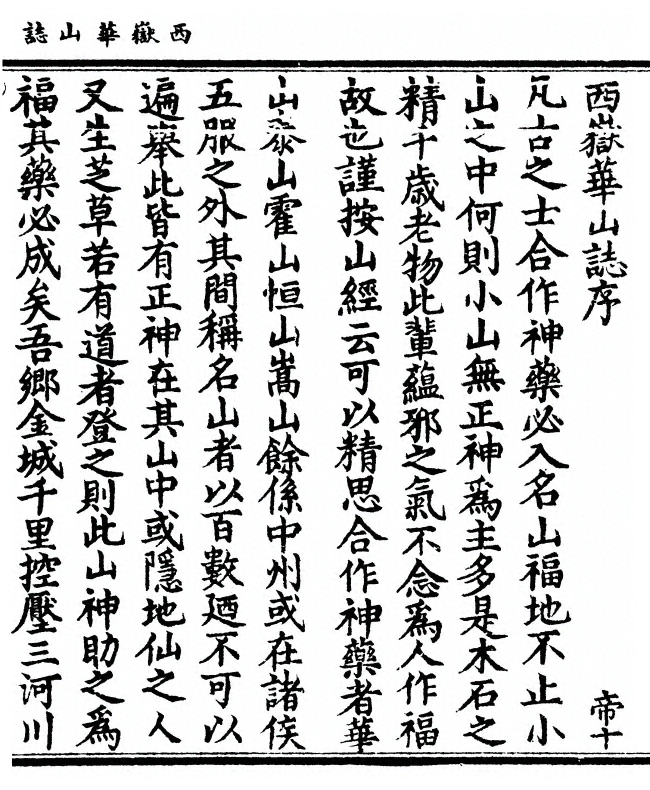 西嶽華山誌
西嶽華山誌序 帝十
凡古之士合作神藥必入名山福地不止小
山之中何則小山無正神爲主多是木石之
精千歲老物此輩蘊邪之氣不念爲人作福
故也謹按山經云可以精思合作神藥者華
山泰山霍山恒山嵩山餘係中州或在諸侯
五服之外其間稱名山者以百數廼不可以
遍舉此皆有正神在其山中或隱地仙之人
又生芝草若有道者登之則此山神助之爲
福其藥必成矣吾鄉金城千里控壓三河川